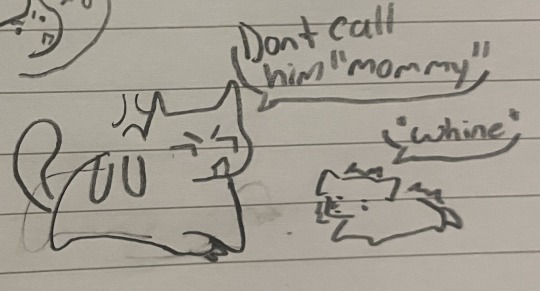 Dont call
him "mommy"
"whine"